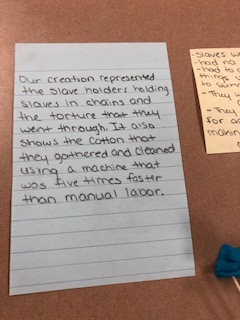 Our creation represented
the slave holders holding
slaves in chains and
the torture that they
went through. It also
shows the cotton that
they gathered and cleaned
using a machine that
was five times faster
than manual labor.
-slaves
-had no
-had to
things
- They
- They
for